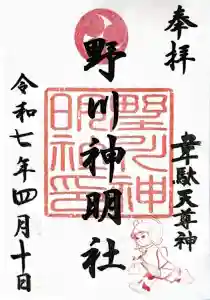 奉拝
韋駄天尊神
野川神明社
野川神明社印
令和七年四月十日